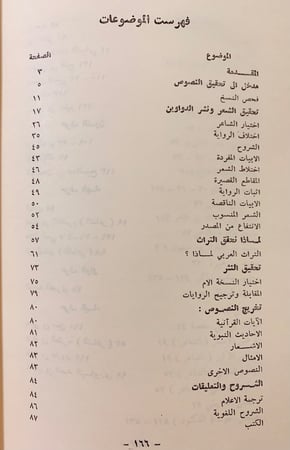 فهرست الموضوعات
الموضوع الصفحة
المقدمة ٣
مدخل الى تحقيق النصوص ٥
فحص النسخ ١١
تحقيق الشعر ونشر الدواوين ١٧
اختيار الشاعر ٢٦
اختلاف الرواية ٣٥
الشروح ٤٥
الابيات المفردة ٤٣
اختلاط الشعر ٤٦
المقاطع القصيرة ٤٨
اثبات الرواية ٤٩
الابيات الناقصة ٥٠
الشعر المنسوب ٥٢
الانتفاع من المصدر ٥٤
لماذا نحقق التراث ٥٧
التراث العربي لماذا ؟ ٦١
تحقيق النثر ٧٣
اختيار النسخة الام ٧٥
المقابلة وترجيح الروايات ٧٩
تخريج النصوص :
الآيات القرآنية ٨٠
الاحاديث النبوية ٨١
الاشعار ٨٢
الامثال ٨٣
النصوص الاخرى ٨٣
الشروح والتعليقات ٨٤
ترجمة الاعلام ٨٤
الشروح اللغوية ٨٦
الكتب ٨٧
- ١٦٦ -